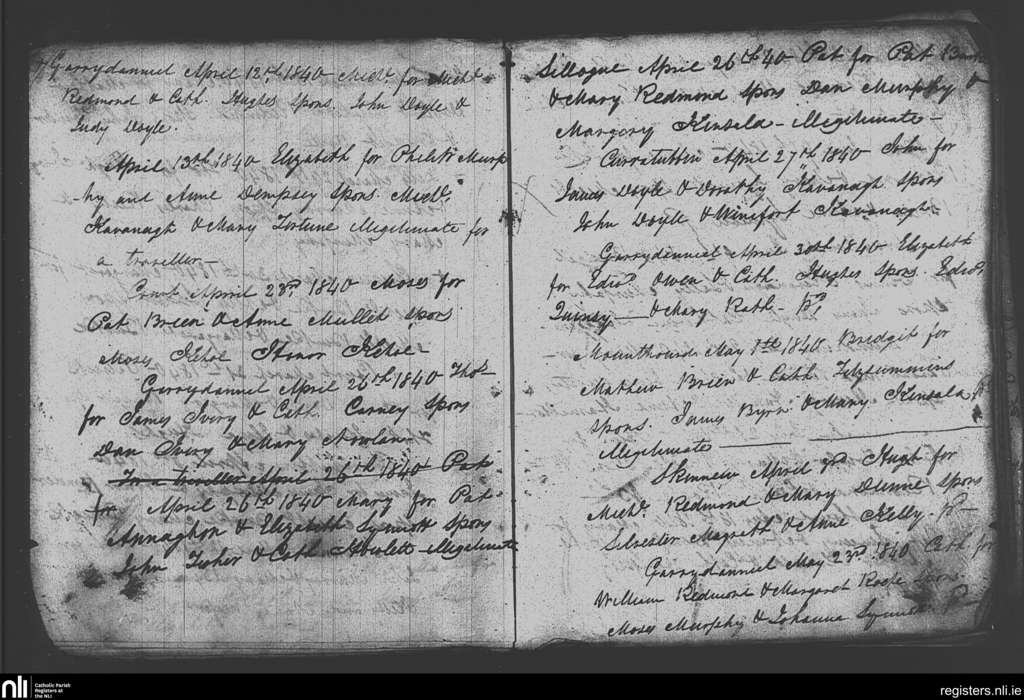 Garrydanniel April 12th 1840 Michl. for Michl.
Redmond & Cath. Hughes Spons. John Doyle &
Judy Doyle.
April 13th 1840 Elizabeth for Philip Murp
-hy and Anne Dempsey Spons. Michl.
Kavanagh & Mary Fortune Illegitimate for
a traveller.—
April 23rd 1840 Moses for
Pat Breen & Anne Mullet spons
Moses Kehoe Honor Kehoe—
Garrydanniel April 26th 1840 Thos.
for James Ivory & Cath. Carney Spons
Dan Ivory & Mary Nowlan—
For a traveller April 26th 1840 Pat
for April 26th 1840 Mary for Pat
Annaghon & Elizabeth Synnott Spons
John & Cath Illegitimate
Sillogue April 26th 40 Pat for Pat
& Mary Redmond Spons Dan Murphy &
Margery Kinsela— Illegitimate—
Curratubbin April 27th 1840 John for
James Doyle & Dorathy Kavanagh Spons
John Doyle & Winefort Kavanagh—
Garrydanniel April 30th 1840 Elizabeth
for Edwd. Owen & Cath. Hughes Spons. Edwd.
Quinsy — & Mary Rath— pd.
— May 1th 1840. Bridgit for
Mathew Brien & Cath Fitzsimmins
Spons. James Byrn & Mary Kinsela
Illegitimate
April for
Michl. Redmond & Mary Dunne Spons
Silvester Magrath & Anne Kelly— p—
Garrydanniel May 23rd 1840 Cath for
William Redmond & Margaret Spons.
Moses Murphy & Johanna Synnott p—
nli Catholic Parish
Registers at
the NLI
registers.nli.ie